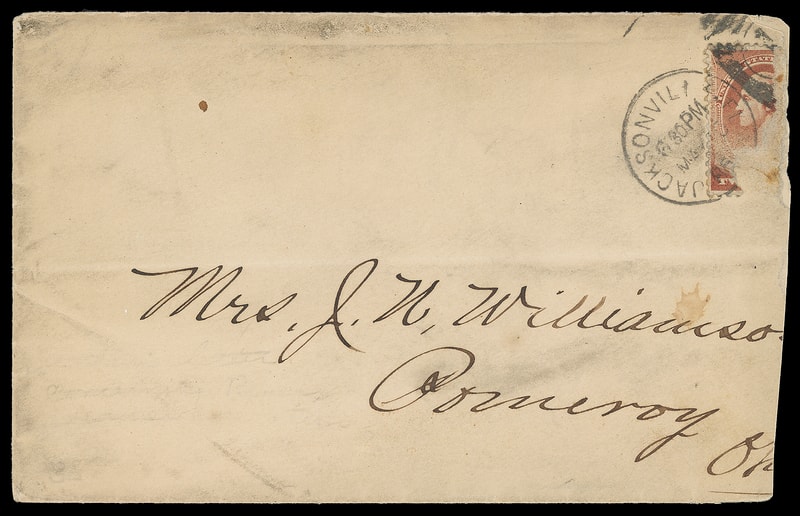 JACKSONVIL
30 PM
Mrs. J. N. Williamso
Pomeroy
Oh